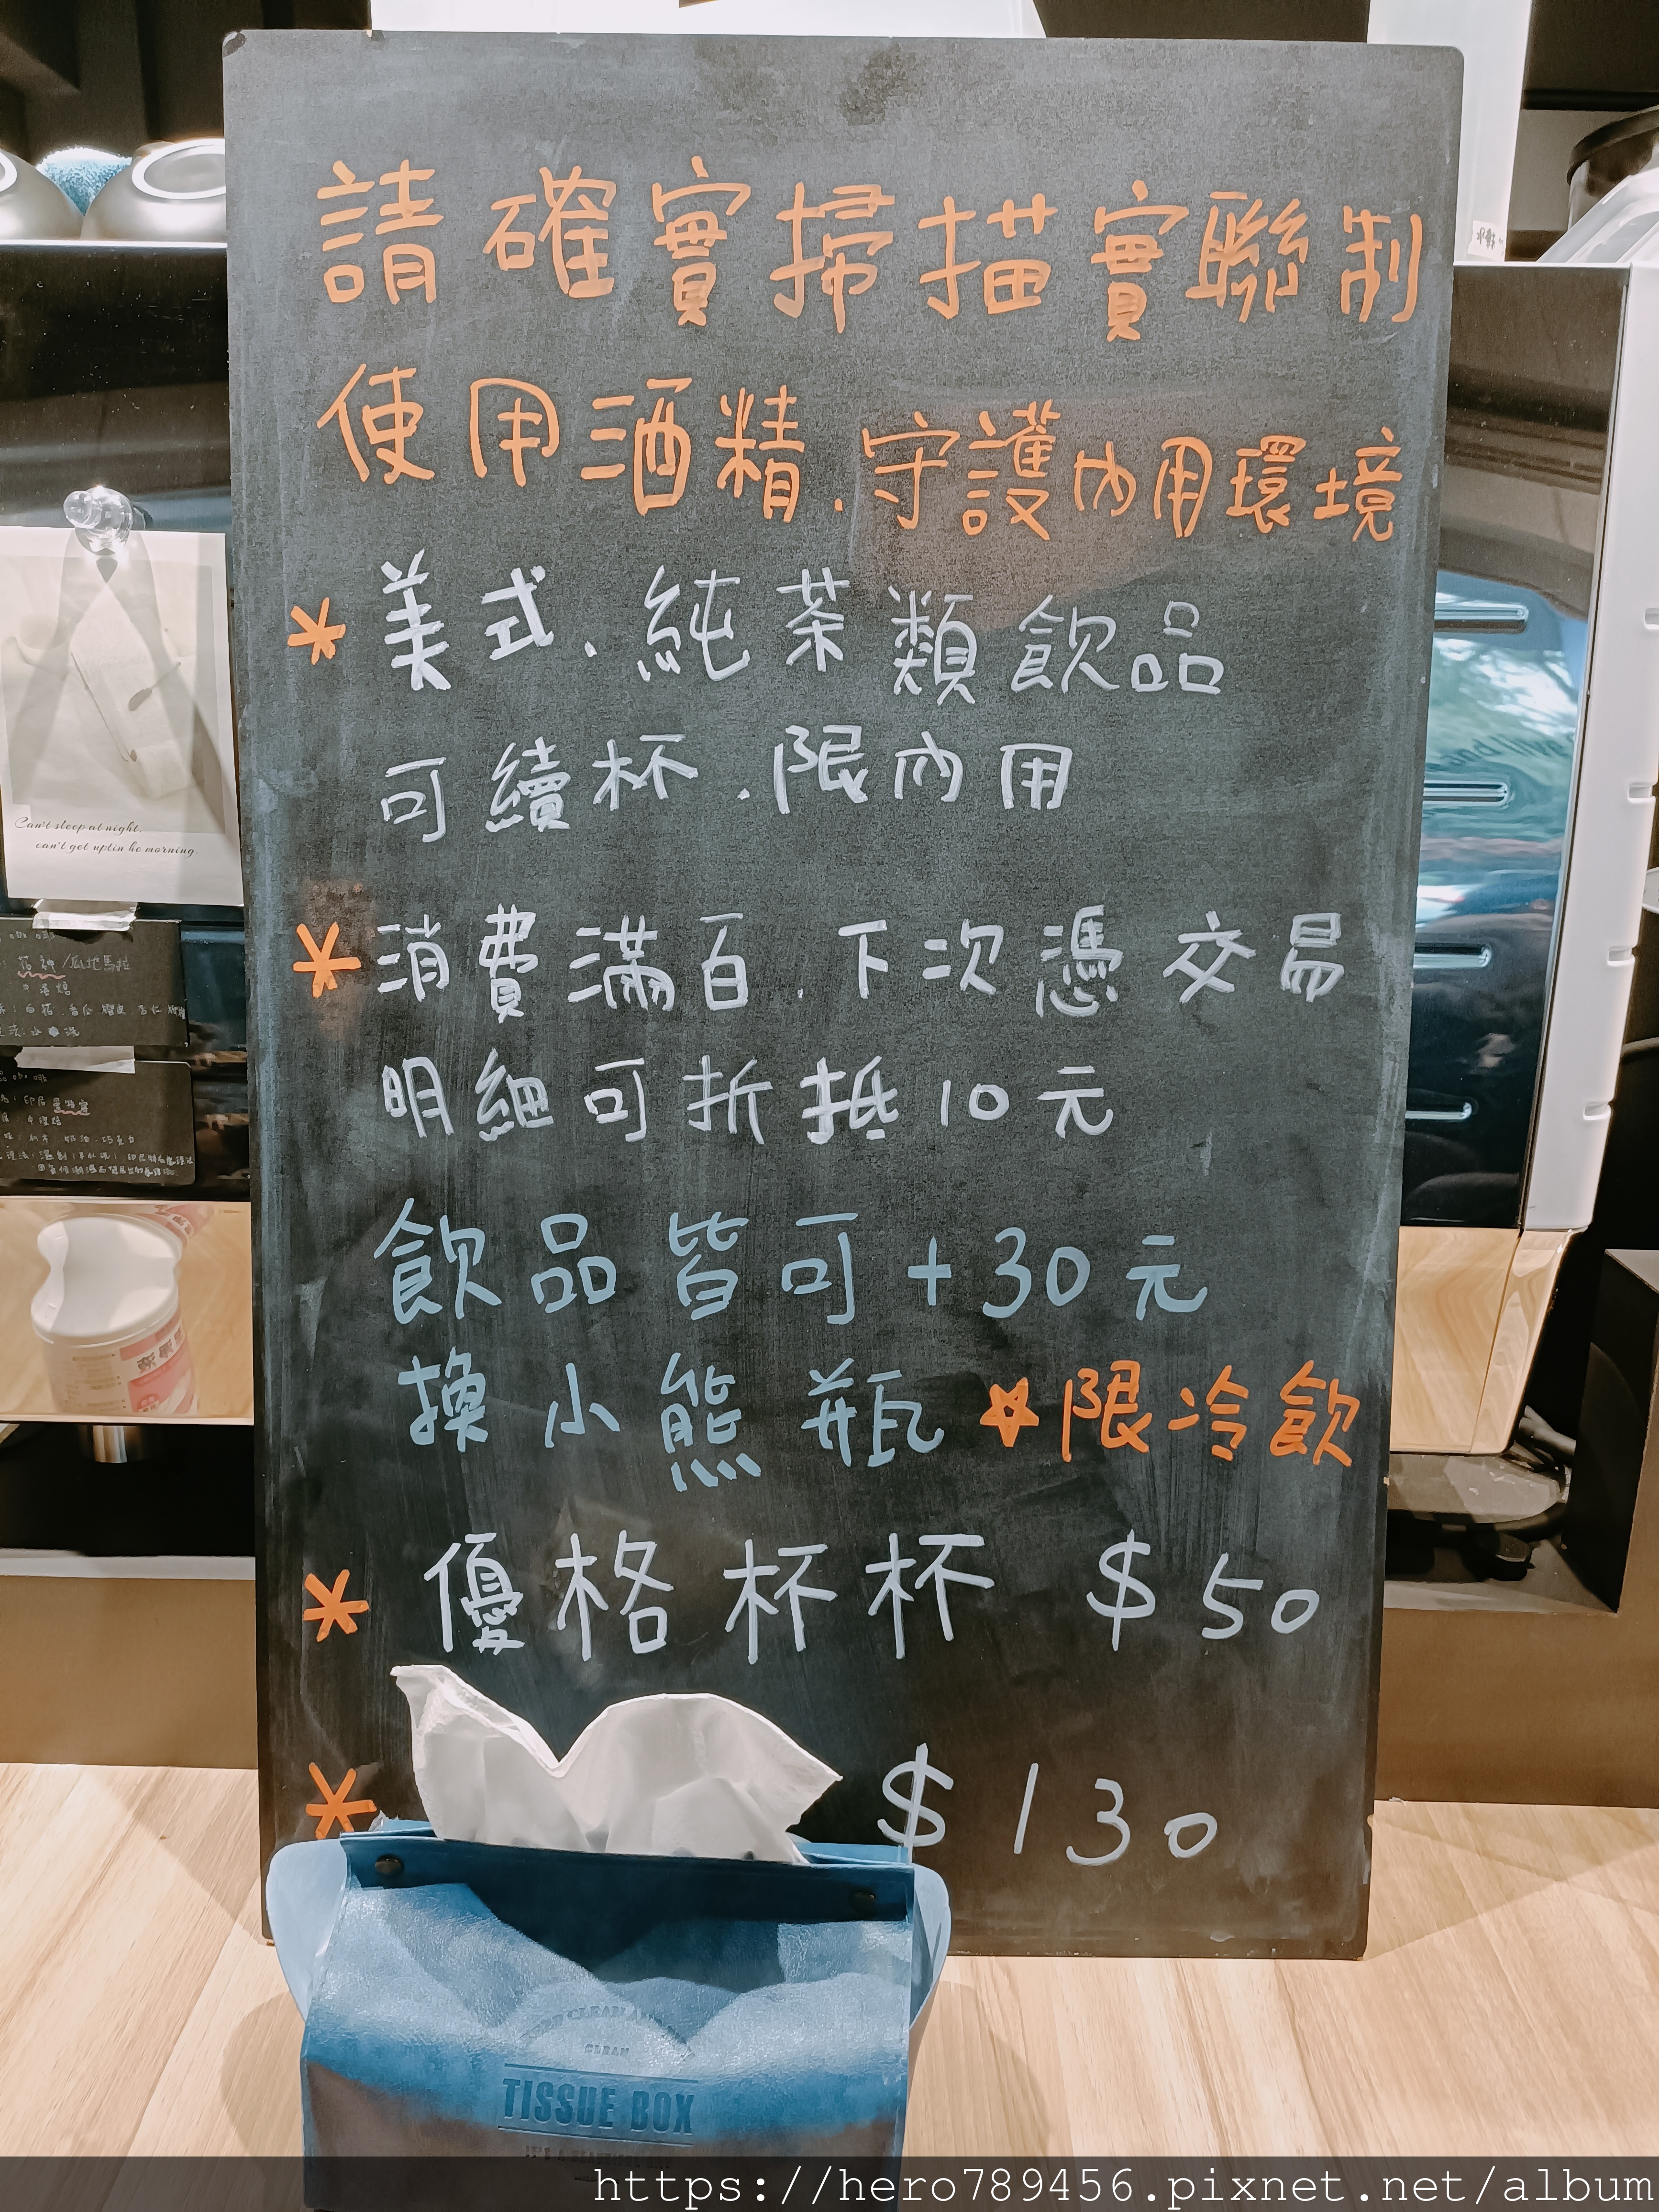 請確實掃描實聯制
使用酒精.守護內用環境
* 美式.純茶類飲品
可續杯.限內用
* 消費滿百.下次憑交易
明細可折抵10元
飲品皆可+30元
換小熊瓶 ☆限冷飲
* 優格杯杯 $50
* $130
Can't sleep at night,
can't get up in he morning.
/瓜地馬拉
CLEAN
TISSUE BOX
https://hero789456.pixnet.net/album